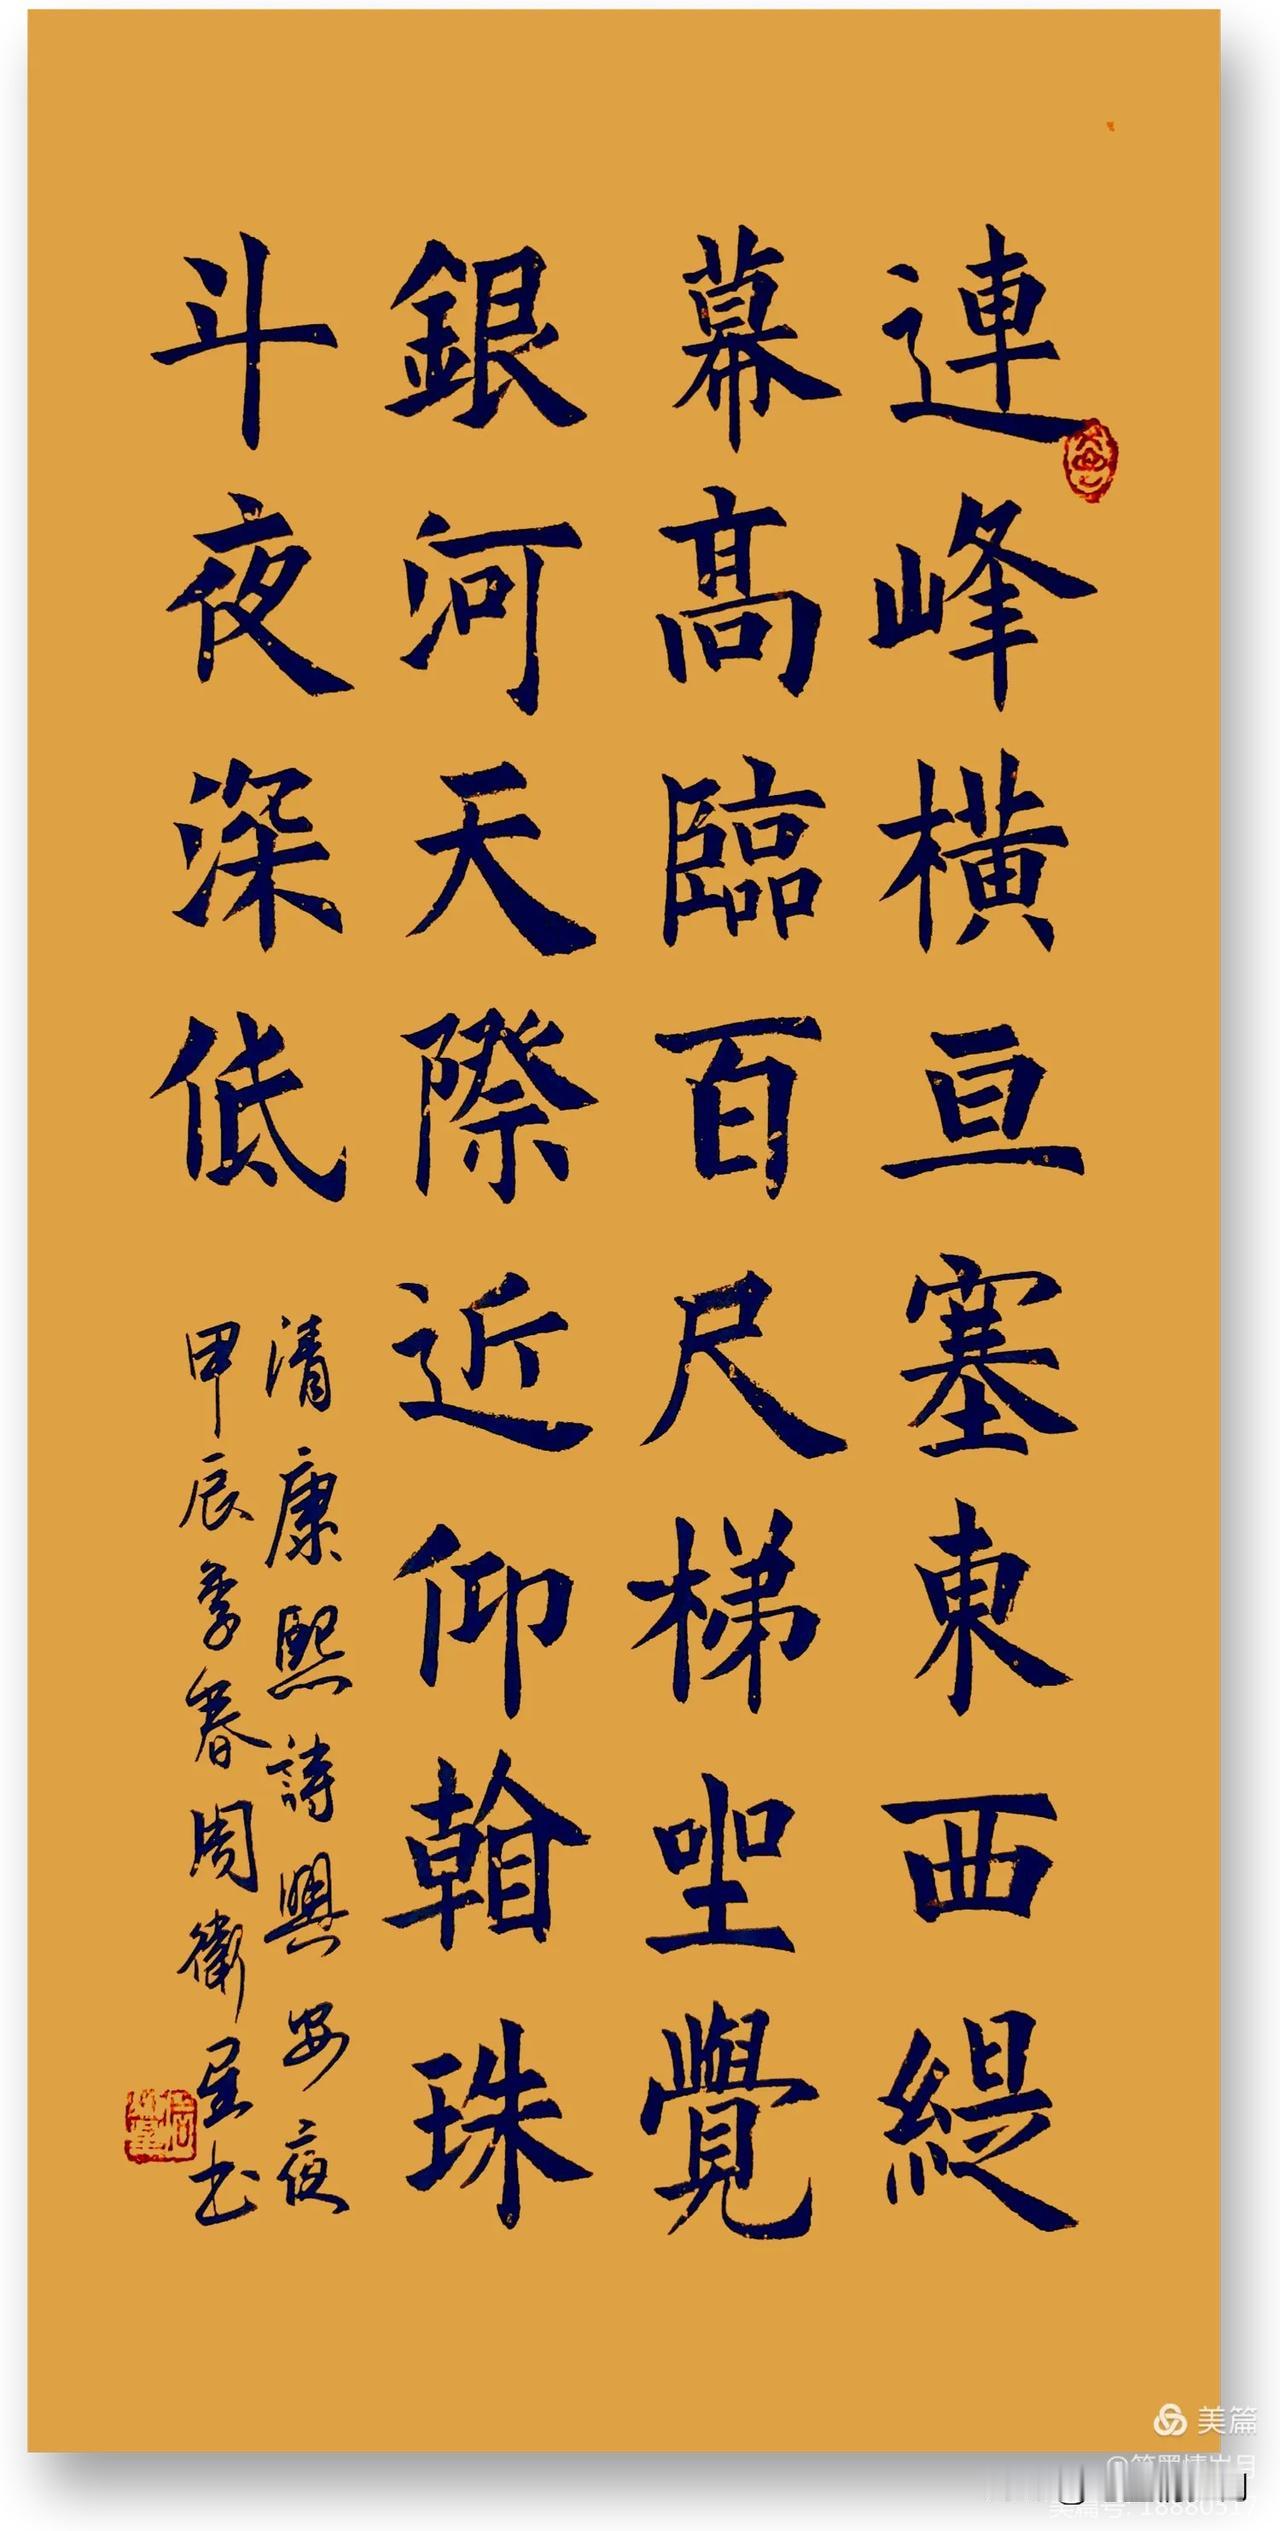 連峰橫亘塞東西緹
幕高臨百尺梯坐覺
銀河天際近仰韜珠
斗夜深低
清康熙詩興安夜
甲辰季春周衛星书
美篇
美篇号: 18880517